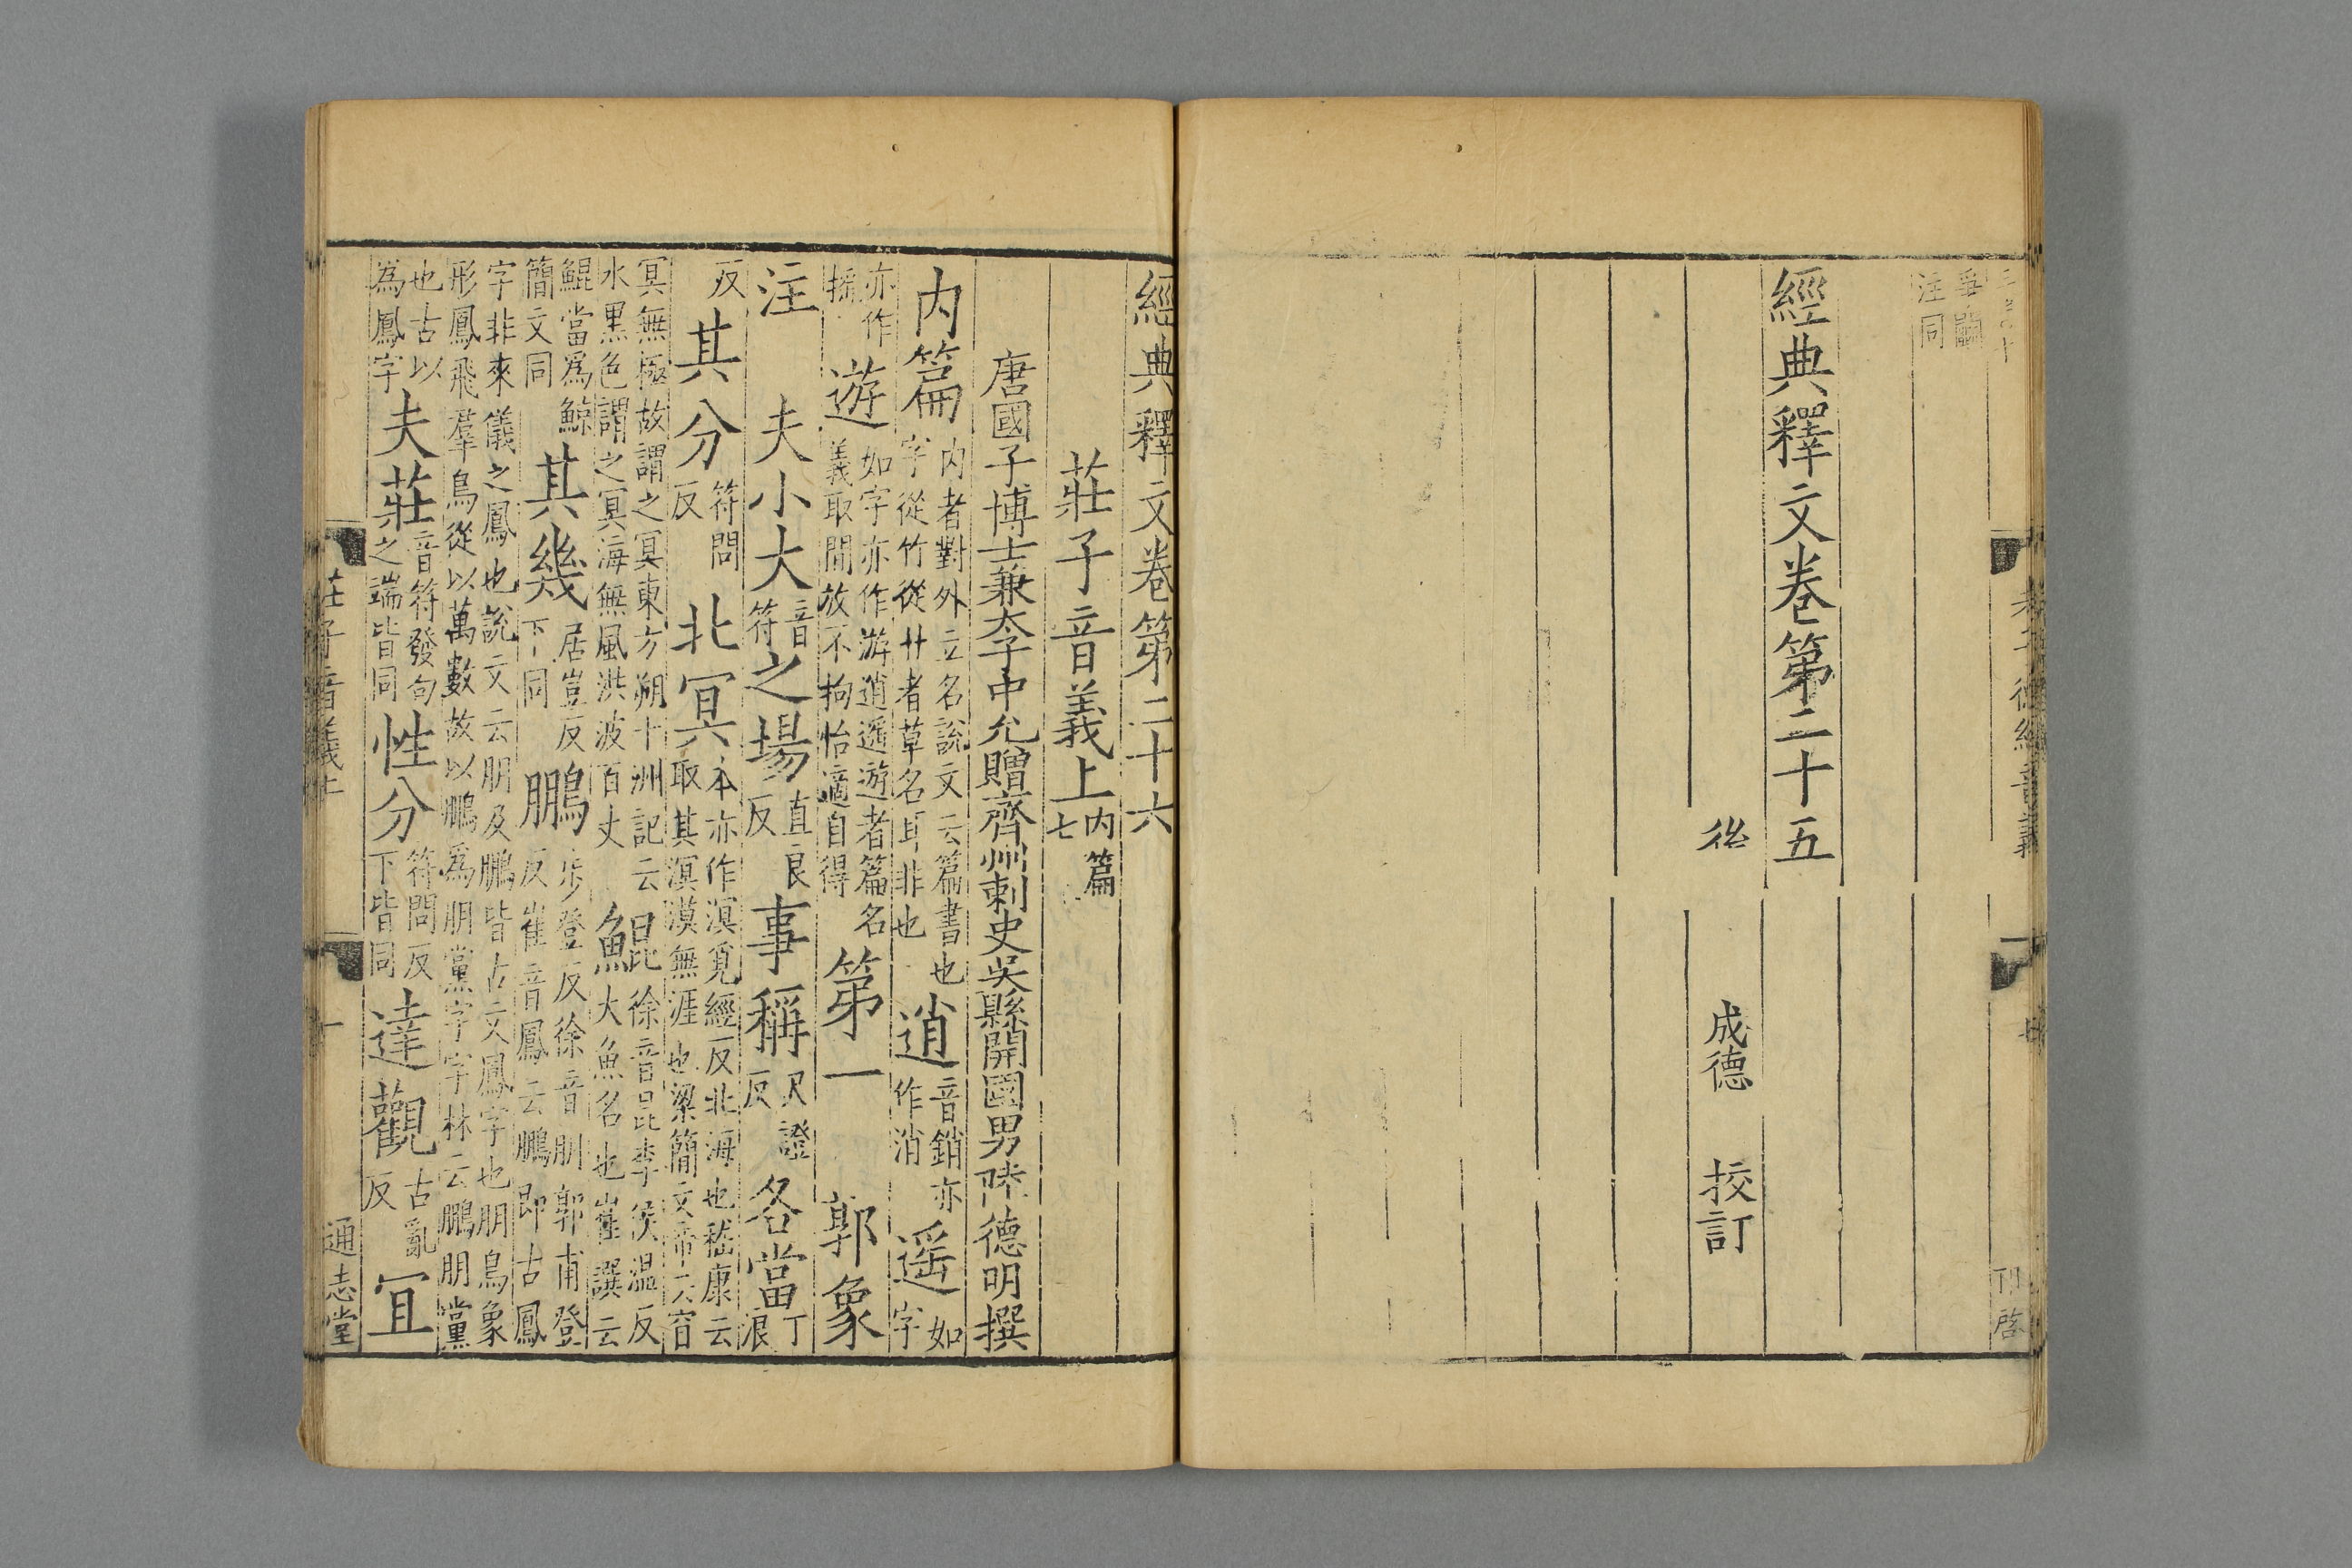 注同
經典釋文卷第二十五
後　成德　挍訂
經典釋文卷第二十六
莊子音義上内篇七
唐國子博士兼太子中允贈齊州刺史吳縣開國男陸德明撰
内篇内者對外立名說文云篇書也字從竹從艹者草名耳非也逍音銷亦作消遥如字
亦作搖遊如字亦作游逍遥遊者篇名義取閒放不拘怡適自得第一　郭象
注　夫小大音符之場直良反事稱尺證反各當丁浪
反其分符問反北冥本亦作溟覓經反北海也嵇康云取其溟漠無涯也梁簡文帝云窅
冥無極故謂之冥東方朔十洲記云水黑色謂之冥海無風洪波百丈鯤徐音昆李侯温反大魚名也崔譔云
鯤當爲鯨簡文同其幾居豈反下同鵬步登反徐音朋郭甫登反崔音鳳云鵬即古鳳
字非來儀之鳳也說文云朋及鵬皆古文鳳字也朋鳥象形鳳飛羣鳥從以萬數故以鵬爲朋黨字字林云鵬朋黨
也古以為鳳字夫莊音符發句之端皆同性分符問反下皆同達觀古亂反宜
莊子音義上　一　通志堂